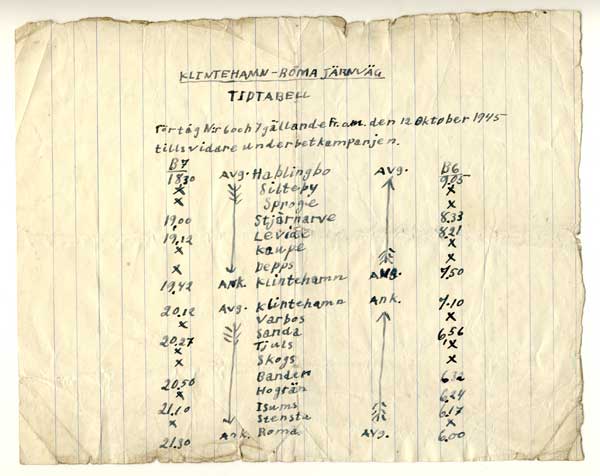 KLINTEHAMN - ROMA JÄRNVÄG
TIDTABELL
För tåg N:r 6 och 7 gällande fr.o.m. den 12 Oktober 1945
tillsvidare under betkampanjen.
B7 B6
18,30 Avg. Hablingbo Avg. 9,05
x Siltepy x
x Sproge x
19,00 Stjärnarve 8.33
19,12 Levide 8,21
x Kaupe x
x Depps x
19,42 Ank. Klintehamn Avg. 7,50
20,12 Avg. Klintehamn Ank. 7.10
x Varbos x
20,27 Sanda 6,56
x Tjuls x
x Skogs x
Bander 6,32
20,50 Hogrän 6,24
21,10 Isums 6,17
x Stensta x
21.30 Ank. Roma Avg. 6.00